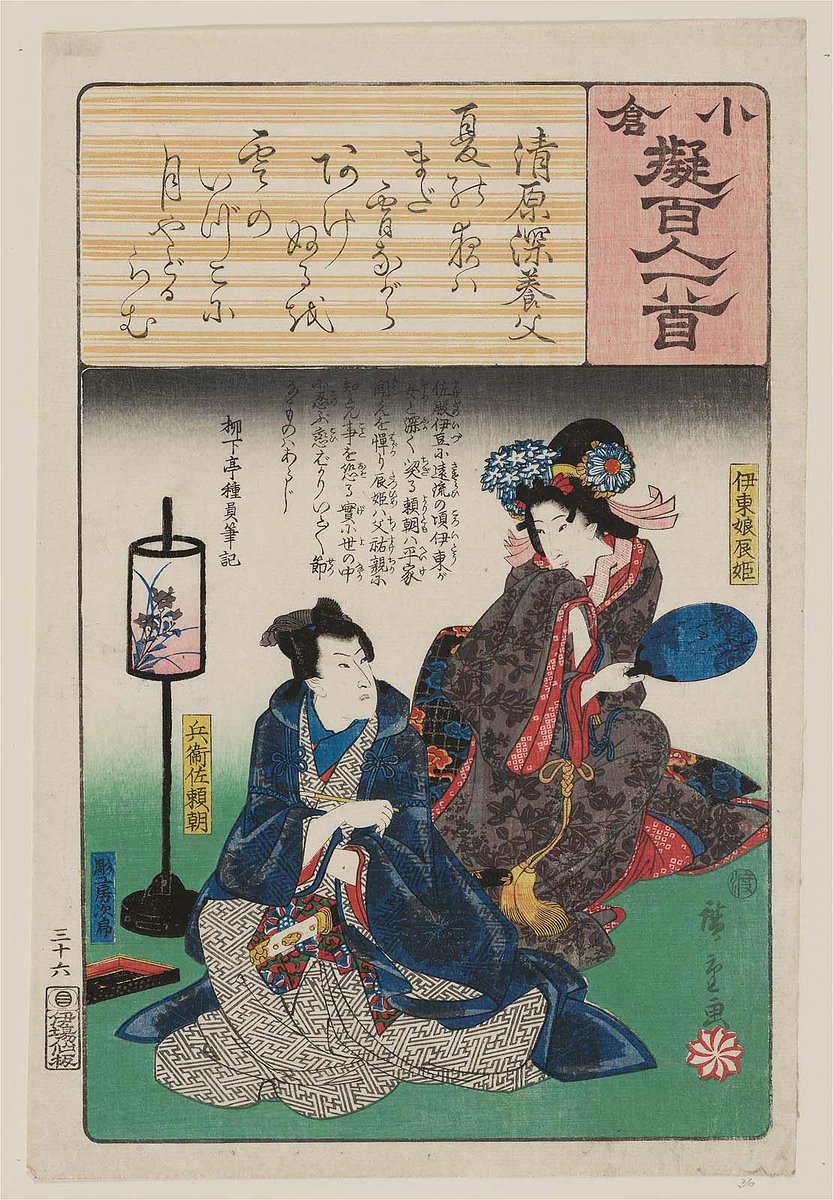 小倉
擬百人一首
清原深養父
夏の夜ハ
まだ
宵ながら
あけ
ぬるを
雲の
いづこに
月やどる
らむ
佐殿伊豆に遠流の頃伊東が
女と深く契る頼朝ハ平家
聞えを憚り辰姫ハ父祐親に
知れん事を恐る實に世の中
に忍ぶ恋ばかり節
なるものハあらじ
柳下亭種員筆記
伊東娘辰姫
兵衛佐頼朝
彫工房次郎
廣重画
渡
三十六
伊場仙板
36